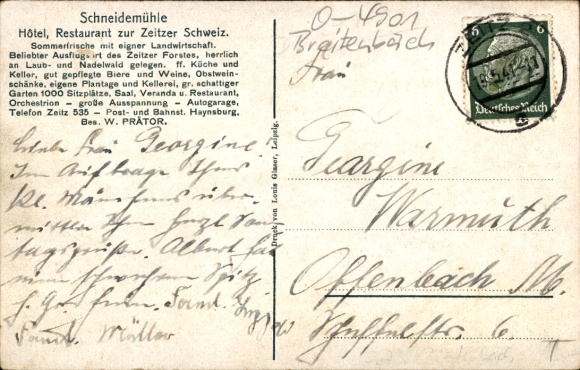 Schneidemühle
Hôtel, Restaurant zur Zeitzer Schweiz.
Sommerfrische mit eigner Landwirtschaft.
Beliebter Ausflugsort des Zeitzer Forstes, herrlich
an Laub- und Nadelwald gelegen. ff. Küche und
Keller, gut gepflegte Biere und Weine, Obstwein-
schänke, eigene Plantage und Kellerei, gr. schattiger
Garten 1000 Sitzplätze, Saal, Veranda u. Restaurant,
Orchestrion - große Ausspannung - Autogarage,
Telefon Zeitz 535 - Post- und Bahnst. Haynsburg,
Bes. W. PRÄTOR.
Liebe Frau Georgine!
Im Auftrage Ihres
Kl. Männchens über-
mittle Ihnen herzl. Sonn
tagsgrüße. Albert hat
einen schweren Spitz
Fam.
Fam. Müller
Druck von Louis Glaser, Leipzig.
O-4901
Breitenbach
6 6
Deutsches Reich
Frau
Georgine
Warmuth
Offenbach M.
6.